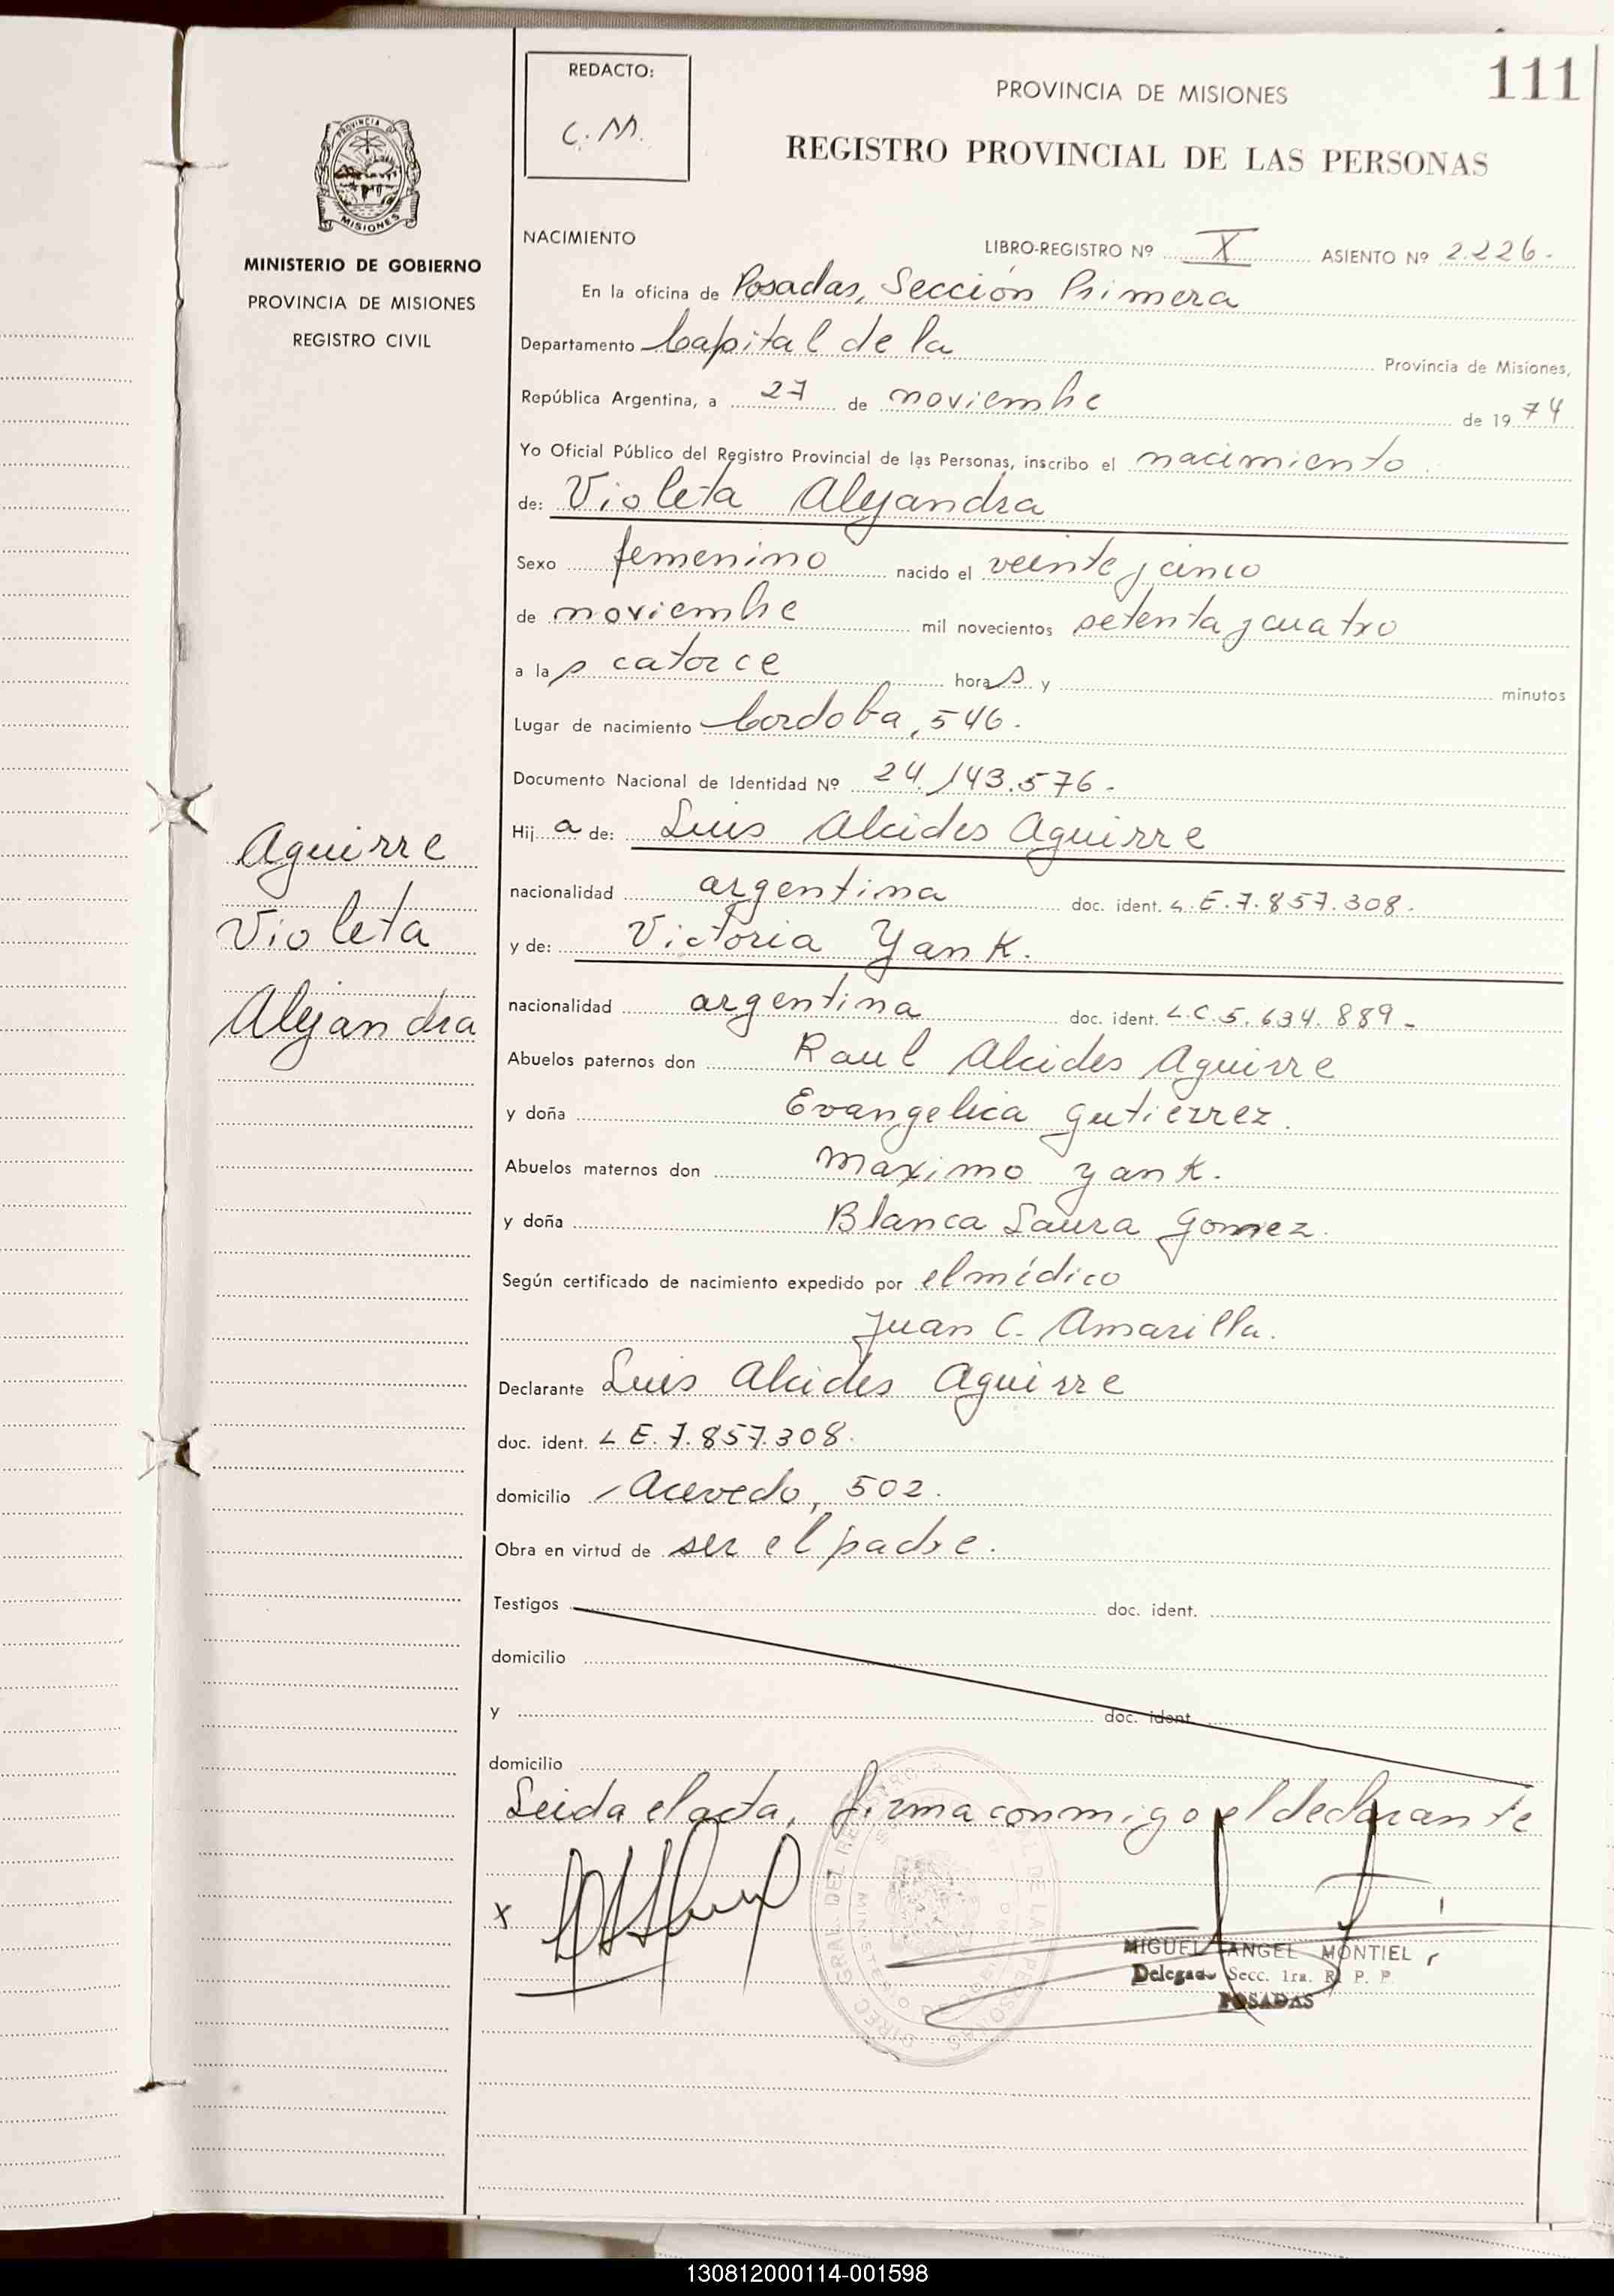 111
REDACTO:
C. M.
PROVINCIA DE MISIONES
REGISTRO PROVINCIAL DE LAS PERSONAS
PROVINCIA DE
MISIONES
MINISTERIO DE GOBIERNO
PROVINCIA DE MISIONES
REGISTRO CIVIL
NACIMIENTO
LIBRO-REGISTRO Nº X ASIENTO Nº 2.226.
En la oficina de Posadas, Sección Primera
Departamento Capital de la Provincia de Misiones,
República Argentina, a 27 de noviembre de 1974
Yo Oficial Público del Registro Provincial de las Personas, inscribo el nacimiento
de: Violeta Alejandra
Sexo femenino nacido el veinte y cinco
de noviembre mil novecientos setenta y cuatro
a las catorce horas y minutos
Lugar de nacimiento Cordoba, 546.
Documento Nacional de Identidad Nº 24.143.576.
Hija de: Luis Alcides Aguirre
nacionalidad argentina doc. ident. L.E. 7.857.308.
y de: Victoria Yank.
nacionalidad argentina doc. ident. L.C. 5.634.889-
Abuelos paternos don Raul Alcides Aguirre
y doña Evangelica Gutierrez.
Abuelos maternos don Maximo Yank.
y doña Blanca Laura Gomez.
Según certificado de nacimiento expedido por el médico
Juan C. Amarilla.
Declarante Luis Alcides Aguirre
doc. ident. L E. 7.857.308.
domicilio Acevedo, 502.
Obra en virtud de ser el padre.
Testigos doc. ident.
domicilio
y doc. ident.
domicilio
Leida el acta, firma conmigo el declarante
Aguirre
Violeta
Alejandra
x
MIGUEL ANGEL MONTIEL
Delegado Secc. 1ra. R. P. P.
POSADAS
130812000114-001598